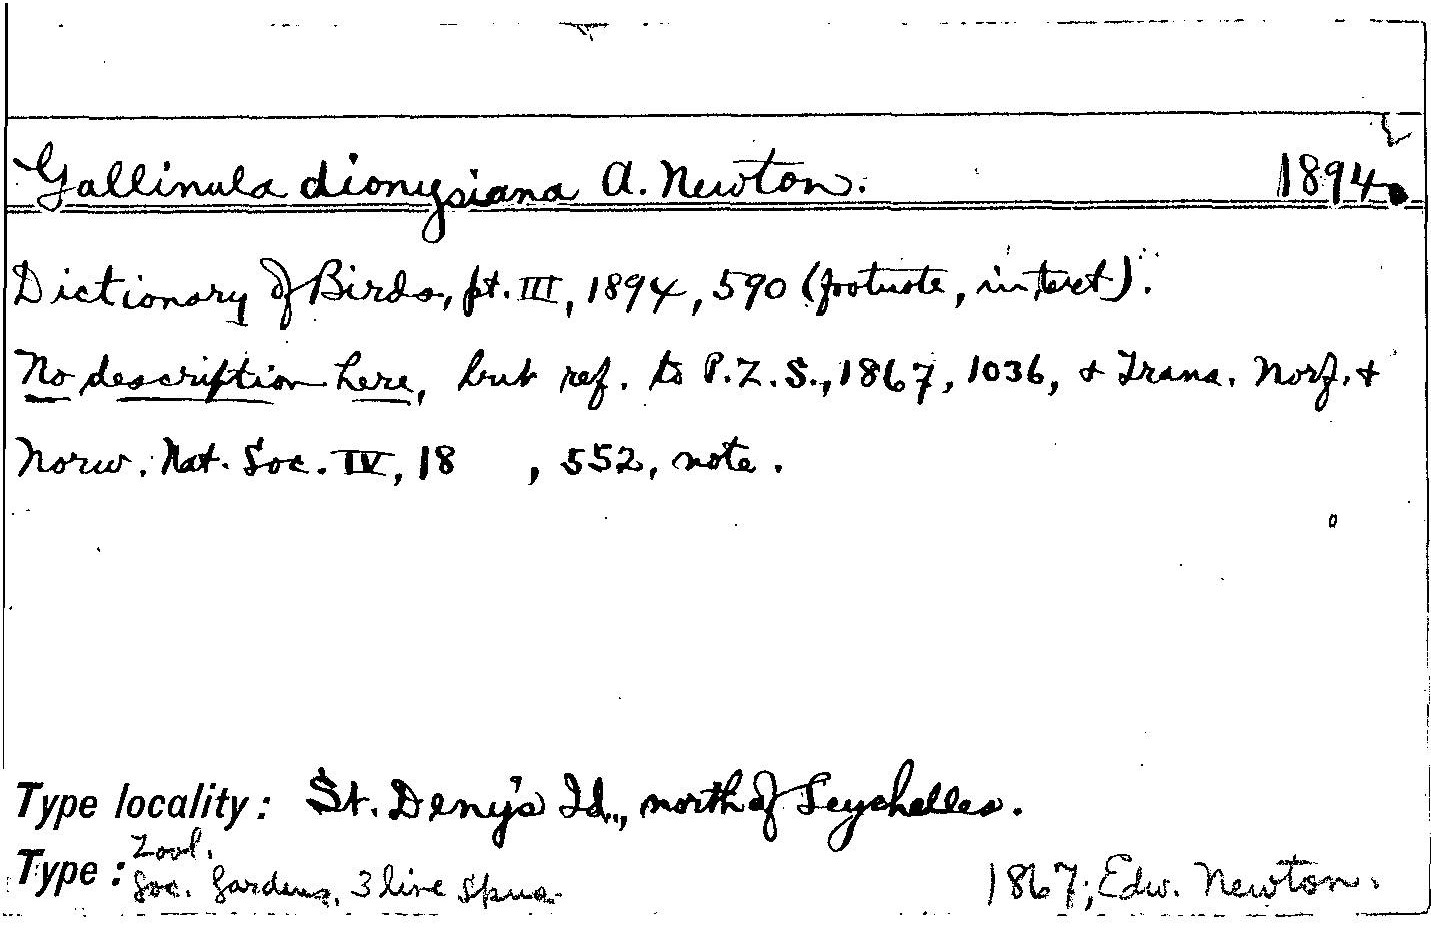 Gallinula dionysiana A. Newton. 1894.
Dictionary of Birds, pt. III, 1894, 590 (footnote, in text).
No description here, but ref. to P.Z.S., 1867, 1036, & Trans. Norf. &
Norw. Nat. Soc. IV, 18 , 552, note.
Type locality: St. Deny's Id., north of Seychelles.
Type: Zool. Soc. Gardens, 3 live spns. 1867; Edw. Newton.